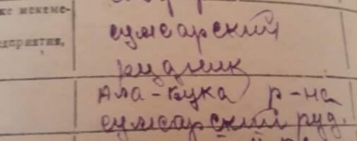 ке мекеме-
дприятия,
сумсарский
рудник
Ала-Бука р-на
сумсарский руд.